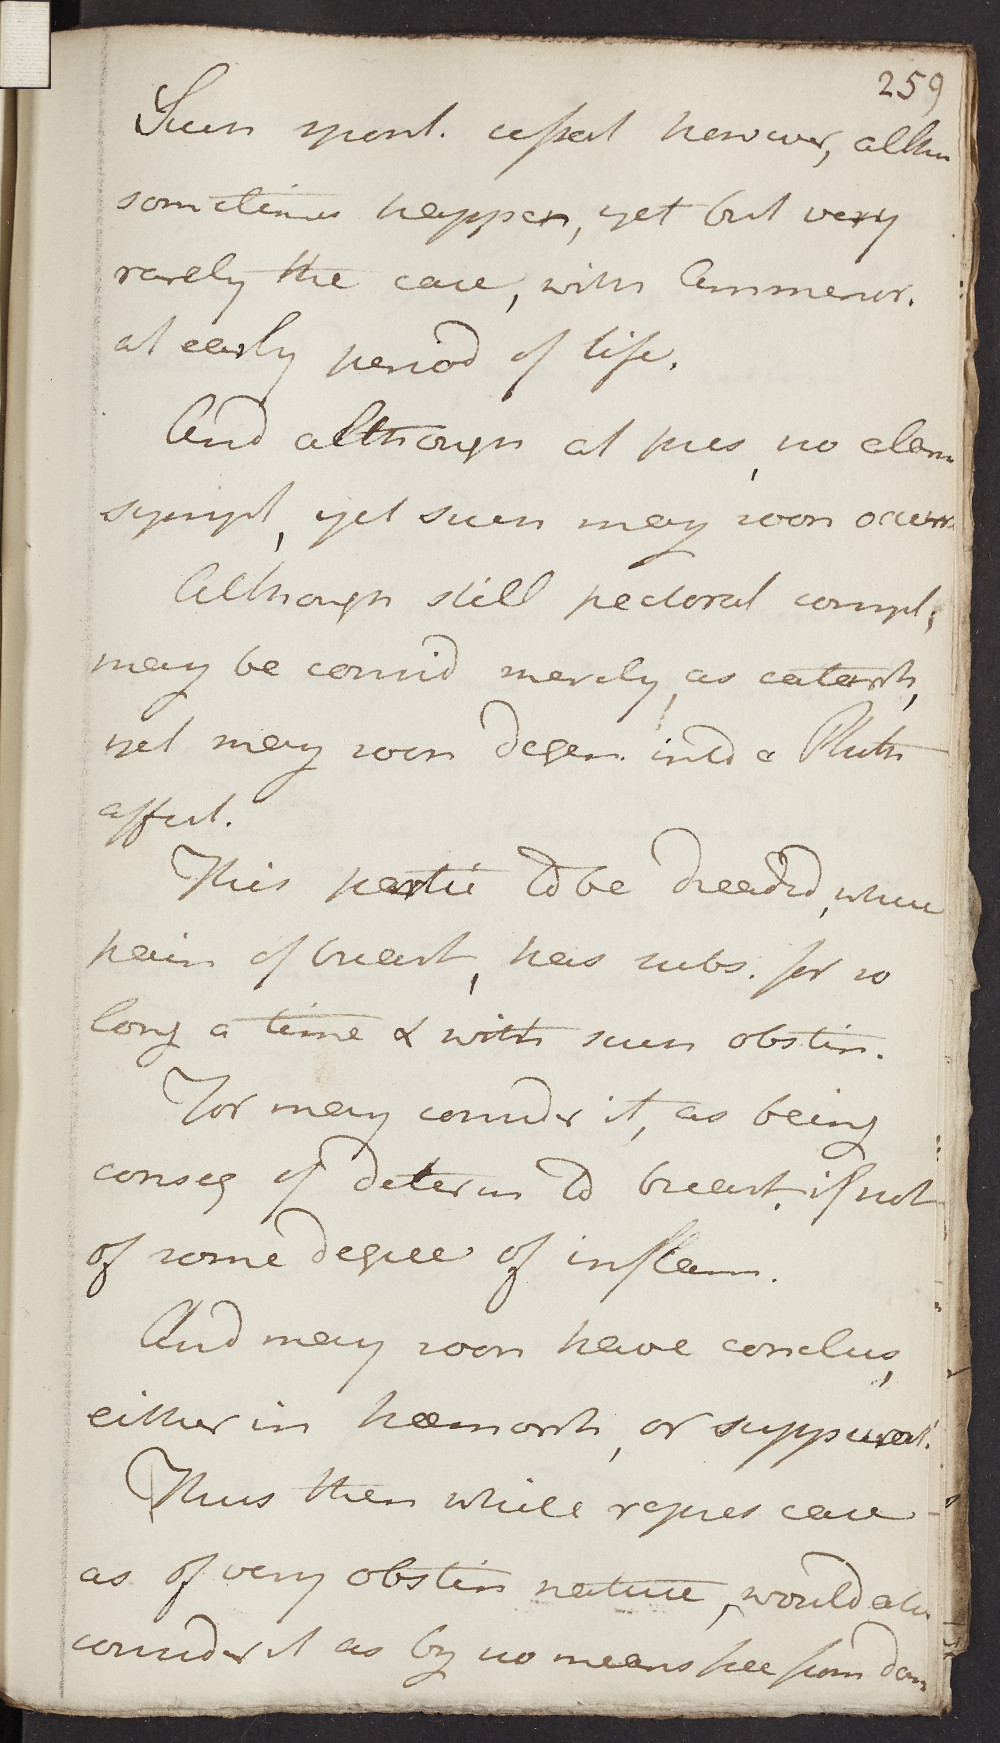 259
Such spont. cessat however, altho
sometimes happen, yet but very
rarely the case, with Ammenor.
at early period of life.
And although at pres, no alarm
sympt, yet such may soon occur
Although still pectoral compl,
may be consid merely, as catarrh,
yet may soon degen. into a Phth
affect.
This partic to be dreaded, where
pain of breast, has subs. for so
long a time & with such obstin.
For may consider it, as being
conseq of determ to breast, if not
of some degree of inflam.
And may soon have conclus,
either in hæmorrh, or suppurat.
Thus then while repres case
as of very obstin nature, would also
consider it as by no means free from dan